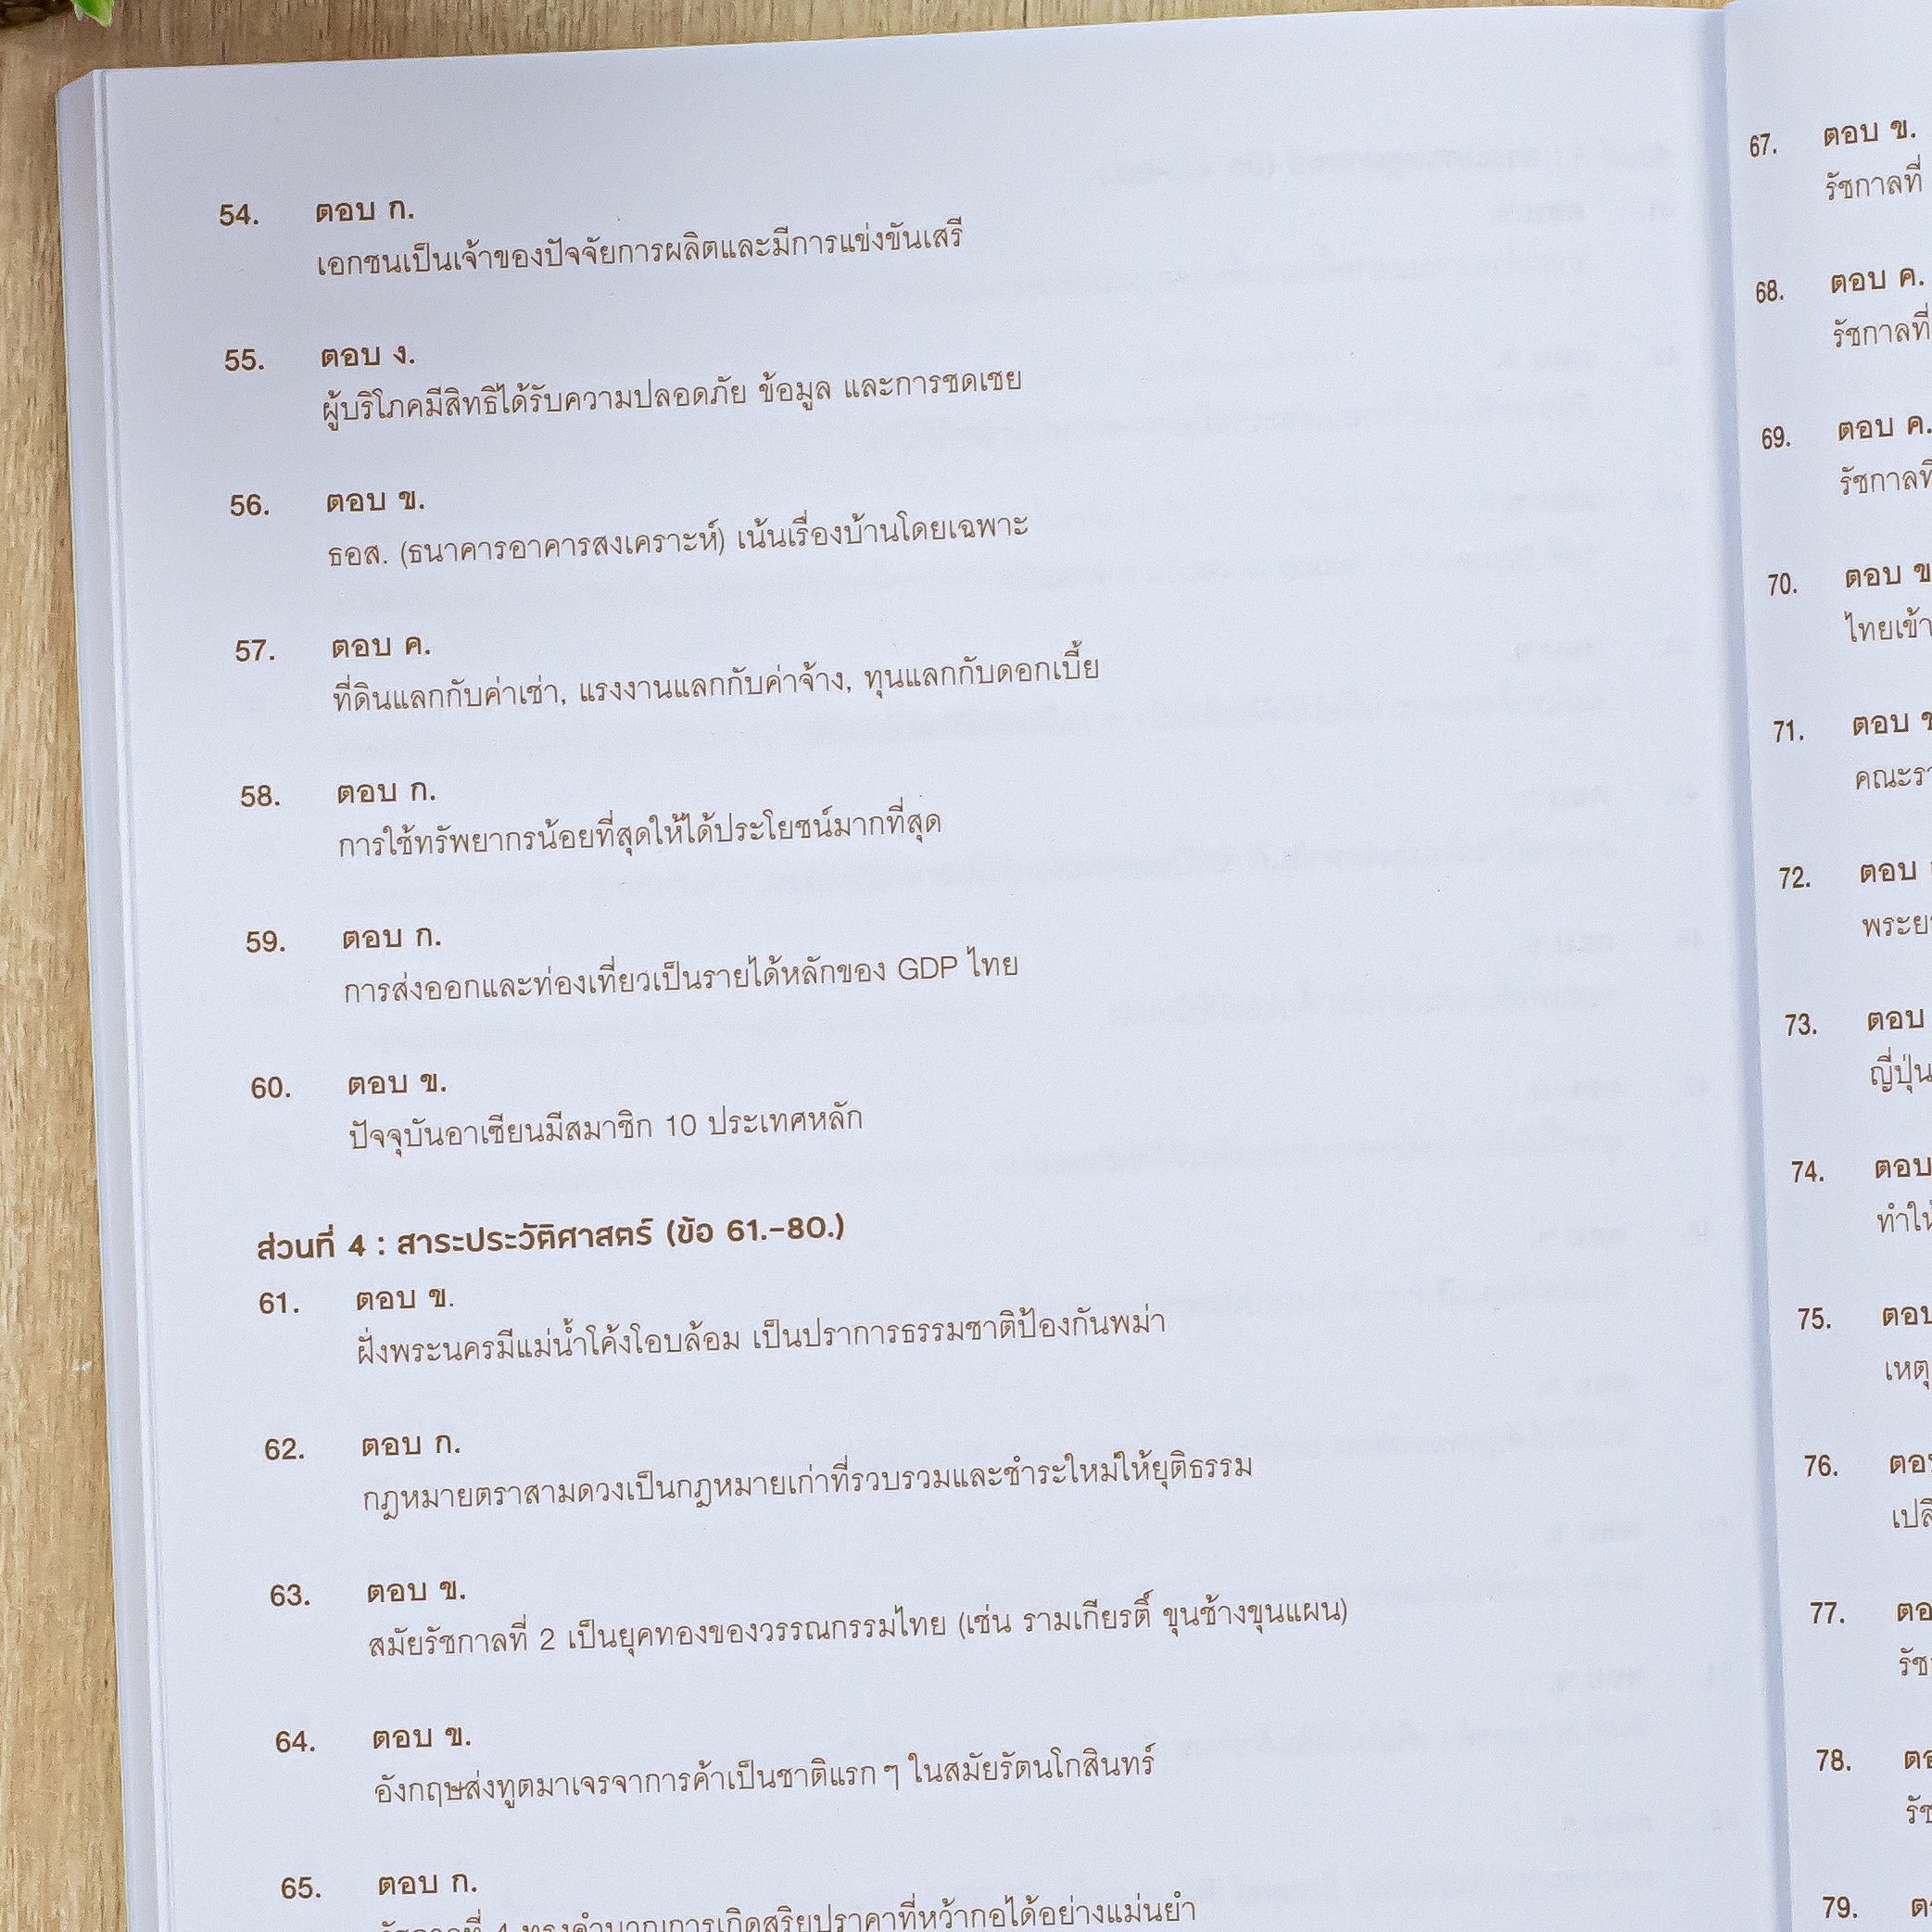 54. ตอบ ก.
เอกชนเป็นเจ้าของปัจจัยการผลิตและมีการแข่งขันเสรี
55. ตอบ ง.
ผู้บริโภคมีสิทธิได้รับความปลอดภัย ข้อมูล และการชดเชย
56. ตอบ ข.
ธอส. (ธนาคารอาคารสงเคราะห์) เน้นเรื่องบ้านโดยเฉพาะ
57. ตอบ ค.
ที่ดินแลกกับค่าเช่า, แรงงานแลกกับค่าจ้าง, ทุนแลกกับดอกเบี้ย
58. ตอบ ก.
การใช้ทรัพยากรน้อยที่สุดให้ได้ประโยชน์มากที่สุด
59. ตอบ ก.
การส่งออกและท่องเที่ยวเป็นรายได้หลักของ GDP ไทย
60. ตอบ ข.
ปัจจุบันอาเซียนมีสมาชิก 10 ประเทศหลัก
ส่วนที่ 4 : สาระประวัติศาสตร์ (ข้อ 61.-80.)
61. ตอบ ข.
ฝั่งพระนครมีแม่น้ำโค้งโอบล้อม เป็นปราการธรรมชาติป้องกันพม่า
62. ตอบ ก.
กฎหมายตราสามดวงเป็นกฎหมายเก่าที่รวบรวมและชำระใหม่ให้ยุติธรรม
63. ตอบ ข.
สมัยรัชกาลที่ 2 เป็นยุคทองของวรรณกรรมไทย (เช่น รามเกียรติ์ ขุนช้างขุนแผน)
64. ตอบ ข.
อังกฤษส่งทูตมาเจรจาการค้าเป็นชาติแรก ๆ ในสมัยรัตนโกสินทร์
65. ตอบ ก.
รัชกาลที่ 4 ทรงคำนวณการเกิดสุริยุปราคาที่หว้ากอได้อย่างแม่นยำ
67. ตอบ ข.
รัชกาลที่
68. ตอบ ค.
รัชกาลที่
69. ตอบ ค.
รัชกาลที่
70. ตอบ ข
ไทยเข้า
71. ตอบ ข
คณะรา
72. ตอบ
พระยา
73. ตอบ
ญี่ปุ่น
74. ตอบ
ทำให้
75. ตอบ
เหตุ
76. ตอบ
เปลี
77. ตอ
รัช
78. ตอ
รัช
79. ต